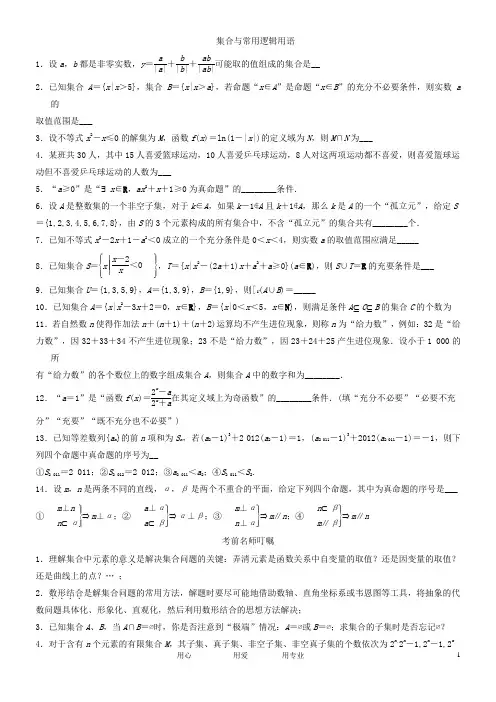 集合与常用逻辑用语
1．设 a，b 都是非零实数，y＝a/|a|＋b/|b|＋ab/|ab|可能取的值组成的集合是__
2．已知集合 A＝{x|x＞5}，集合 B＝{x|x＞a}，若命题“x∈A”是命题“x∈B”的充分不必要条件，则实数 a 的
取值范围是___
3．设不等式 x²－x≤0 的解集为 M，函数 f(x)＝ln(1－|x|)的定义域为 N，则 M∩N 为___
4．某班共30人，其中15人喜爱篮球运动，10人喜爱乒乓球运动，8人对这两项运动都不喜爱，则喜爱篮球运
动但不喜爱乒乓球运动的人数为___
5．“a≥0”是“∃x∈R，ax²＋x＋1≥0为真命题”的________条件．
6．设 A 是整数集的一个非空子集，对于 k∈A，如果 k－1∉A 且 k＋1∉A，那么 k 是 A 的一个“孤立元”，给定 S
＝{1,2,3,4,5,6,7,8}，由 S 的3个元素构成的所有集合中，不含“孤立元”的集合共有________个．
7．已知不等式 x²－2x＋1－a²＜0成立的一个充分条件是0＜x＜4，则实数 a 的取值范围应满足_____
8．已知集合 S＝{x|(x－2)/x＜0}，T＝{x|x²－(2a＋1)x＋a²＋a≥0}(a∈R)，则 S∪T＝R 的充要条件是___
9．已知集合 U＝{1,3,5,9}，A＝{1,3,9}，B＝{1,9}，则∁U(A∪B)＝_____
10．已知集合 A＝{x|x²－3x＋2＝0，x∈R}，B＝{x|0＜x＜5，x∈N}，则满足条件 A⊆C⊆B 的集合 C 的个数为
11．若自然数 n 使得作加法 n＋(n＋1)＋(n＋2)运算均不产生进位现象，则称 n 为“给力数”，例如：32是“给
力数”，因32＋33＋34不产生进位现象；23不是“给力数”，因23＋24＋25产生进位现象．设小于1 000的所
有“给力数”的各个数位上的数字组成集合 A，则集合 A 中的数字和为________．
12．“a＝1”是“函数 f(x)＝(2ˣ－a)/(2ˣ＋a)在其定义域上为奇函数”的________条件．(填“充分不必要”“必要不充
分”“充要”“既不充分也不必要”)
13．已知等差数列{aₙ}的前 n 项和为 Sₙ，若(a₂－1)³＋2 012(a₂－1)＝1，(a₂ ₀₁₁－1)³＋2012(a₂ ₀₁₁－1)＝－1，则下
列四个命题中真命题的序号为__
①S₂ ₀₁₁＝2 011；②S₂ ₀₁₂＝2 012；③a₂ ₀₁₁＜a₂；④S₂ ₀₁₁＜S₂.
14．设 m，n 是两条不同的直线，α，β是两个不重合的平面，给定下列四个命题，其中为真命题的序号是___
① m⊥n n⊂α}⇒m⊥α；② a⊥α a⊂β}⇒α⊥β；③ m⊥α n⊥α}⇒m∥n；④ n⊂β m∥β}⇒m∥n
考前名师叮嘱
1．理解集合中元素的意义是解决集合问题的关键：弄清元素是函数关系中自变量的取值？还是因变量的取值？
还是曲线上的点？… ；
2．数形结合是解集合问题的常用方法，解题时要尽可能地借助数轴、直角坐标系或韦恩图等工具，将抽象的代
数问题具体化、形象化、直观化，然后利用数形结合的思想方法解决；
3．已知集合 A、B，当 A∩B＝∅时，你是否注意到“极端”情况：A＝∅或 B＝∅；求集合的子集时是否忘记∅？
4．对于含有 n 个元素的有限集合 M，其子集、真子集、非空子集、非空真子集的个数依次为 2ⁿ 2ⁿ－1,2ⁿ－1,2ⁿ
用心 用爱 用专业 1